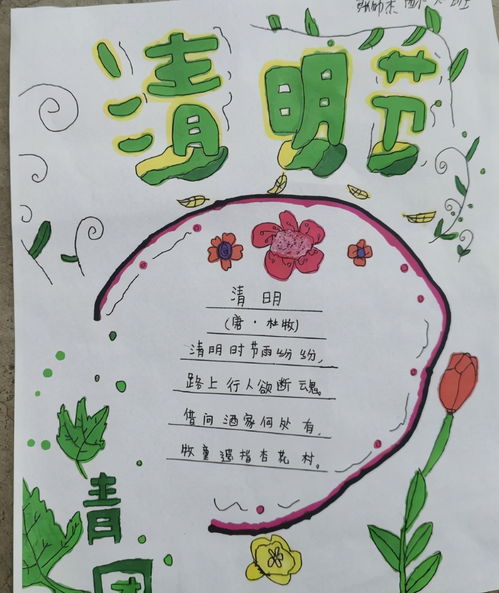 清明节
清明
(唐·杜牧)
清明时节雨纷纷,
路上行人欲断魂。
借问酒家何处有,
牧童遥指杏花村。
青团